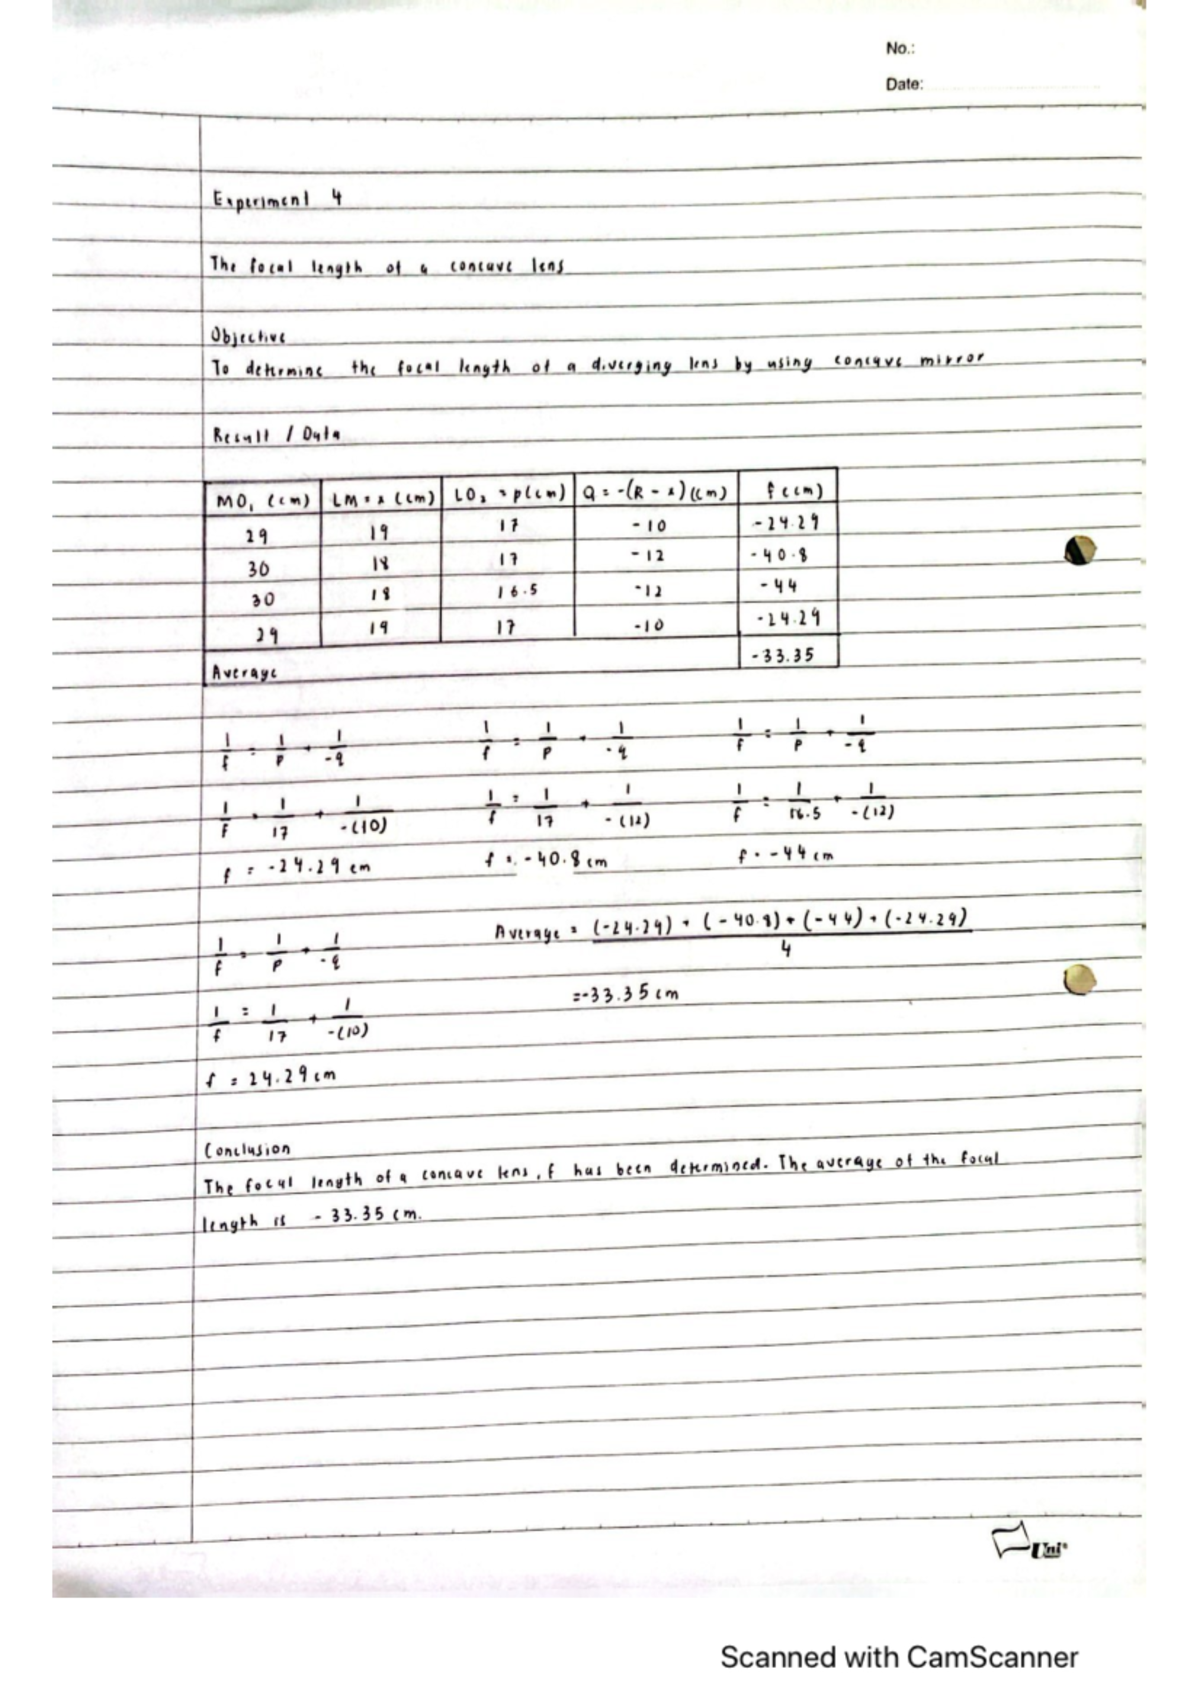 No.:
Date:
Experiment 4
The focal length of a concave lens
Objective
To determine the focal length of a diverging lens by using concave mirror
Result / Data
MO₁ (cm) LM = x (cm) LO₂ = p(cm) Q = -(R - x)(cm) f (cm)
29 19 17 -10 -24.29
30 18 17 -12 -40.8
30 18 16.5 -12 -44
29 19 17 -10 -24.29
Average -33.35
1/f = 1/p + 1/-q 1/f = 1/p + 1/-q 1/f = 1/p + 1/-q
1/f = 1/17 + 1/-(10) 1/f = 1/17 + 1/-(12) 1/f = 1/16.5 + 1/-(12)
f = -24.29 cm f = -40.8 cm f = -44 cm
1/f = 1/p + 1/-q Average = (-24.29) + (-40.8) + (-44) + (-24.29) / 4
1/f = 1/17 + 1/-(10) =-33.35 cm
f = 24.29 cm
Conclusion
The focal length of a concave lens, f has been determined. The average of the focal
length is - 33.35 cm.
Uni
Scanned with CamScanner